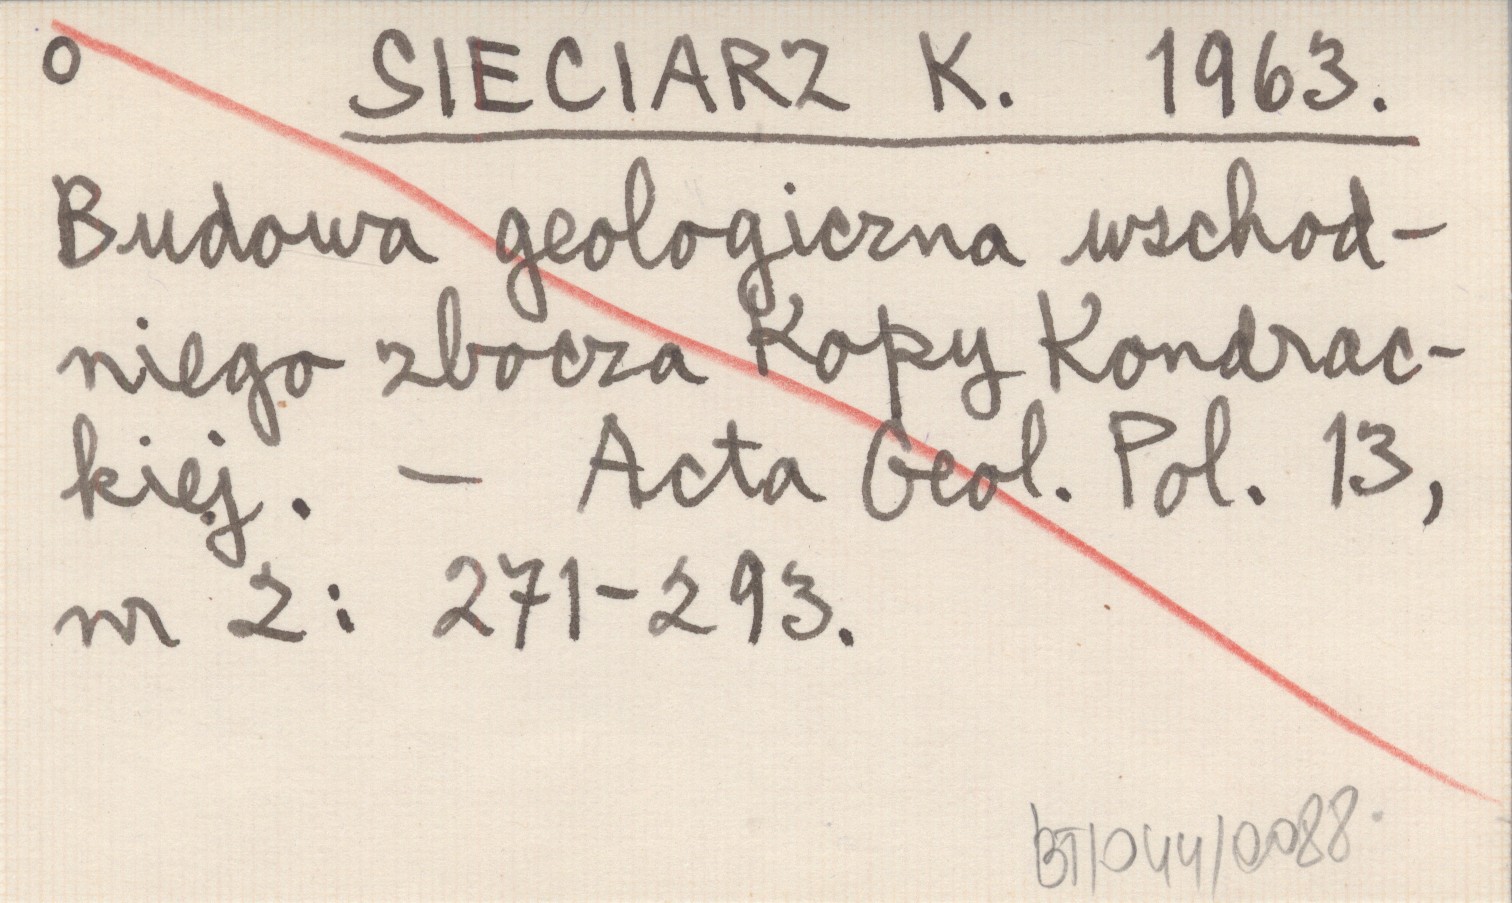 o SIECIARZ K. 1963.
Budowa geologiczna wschod-
niego zbocza Kopy Kondrac-
kiej. - Acta Geol. Pol. 13,
nr 2: 271-293.
BT/044/0088.